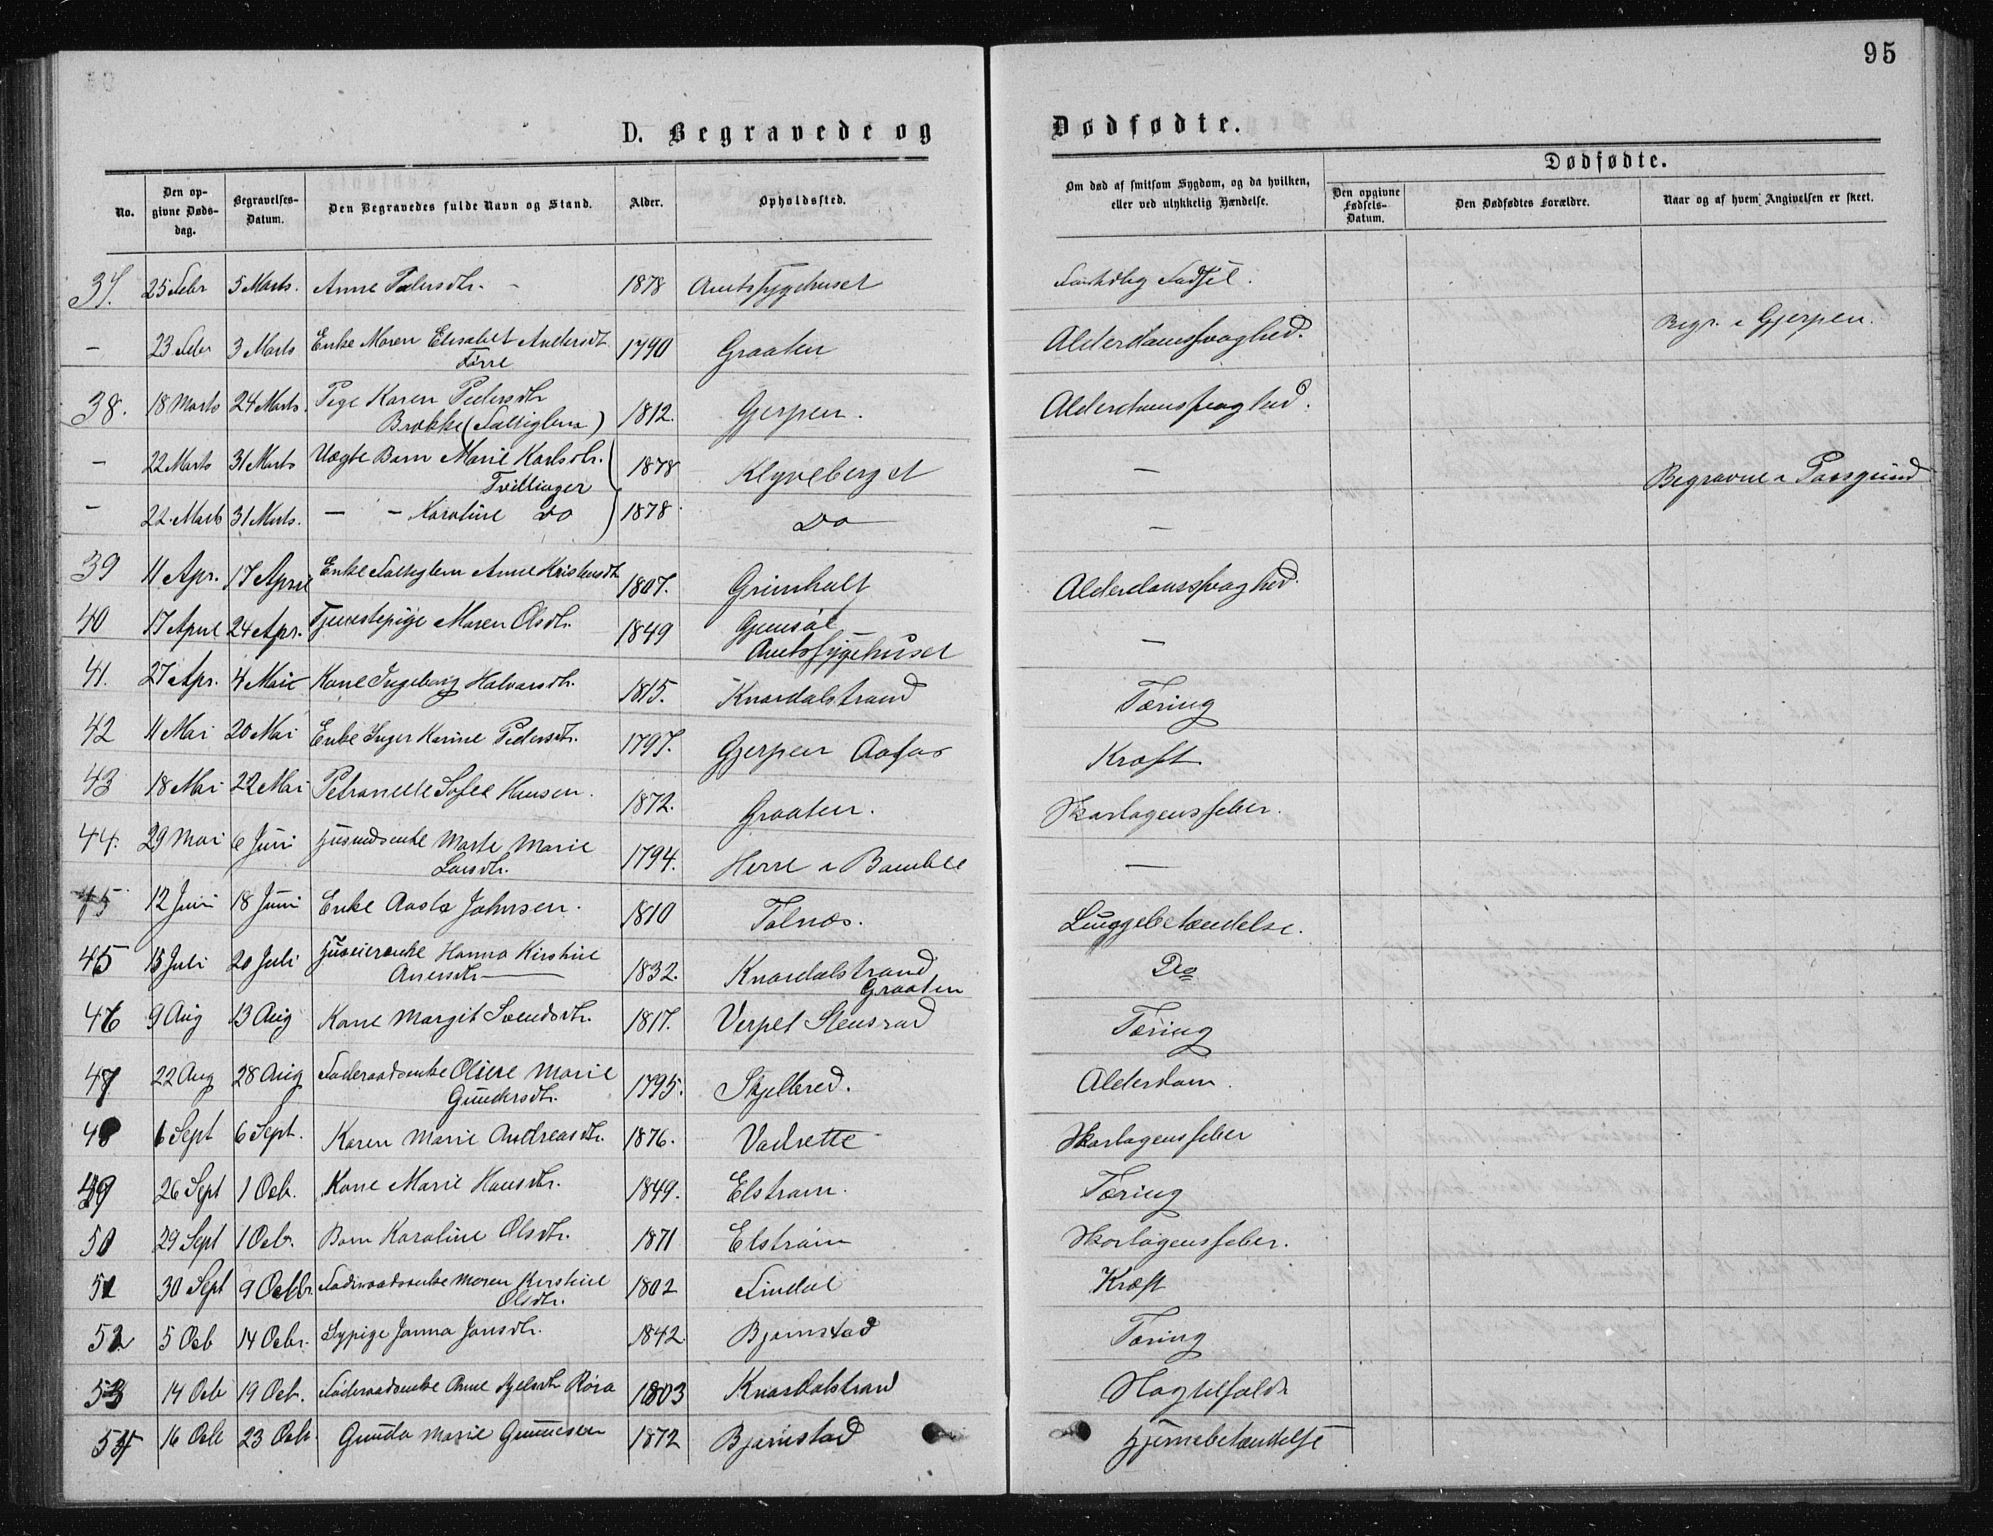 95
D. Begravede og
Dødfødte.
No.
Den op-
givne Døds-
dag.
Begravelses-
Datum.
Den Begravedes fulde Navn og Stand.
Alder.
Opholdssted.
Om død af smitsom Sygdom, og da hvilken,
eller ved ulykkelig Hændelse.
Dødfødte.
Den opgivne
Fødsels-
Datum.
Den Dødfødtes Forældre.
Naar og af hvem Angivelsen er skeet.
37. 25 Febr 5 Marts. Anne Pedersdtr. - 1878 Amtssygehuset Fødsel.
- 23 Febr 3 Marts Enke Maren Elisabet Andersdt 1790 Graaten Alderdomssvaghed. Begr. i Gjerpen.
38. 18 Marts 24 Marts. Pige Karen Pedersdtr 1812. Gjerpen. Alderdomssvaghed.
Brække (Fattiglem)
- 22 Marts 31 Marts Uægte Barn Marie Karlsdtr. 1878 Klyveberget - Begravne i Porsgrund
Tvillinger
- 22 Marts 31 Marts. - - Karoline Do 1878 Do -
39 11 Apr. 17 April Enke Fattiglem Anne Kristensdt 1807. Grimholt Alderdomssvaghed.
40 17 April 24 Apr. Tjenestepige Maren Olsdtr. 1849 Gjemsøe -
Amtssygehuset
41. 27 Apr. 4 Mai Kone Ingeborg Halvorsdtr. 1815. Knardalstrand Tæring
42 11 Mai 20 Mai Enke Inger Karine Pedersdtr. 1797. Gjerpen Aafos Kræft
43 18 Mai 22 Mai Petronelle Sofie Hansen. 1872. Graaten. Skarlagensfeber.
44. 29 Mai 6 Juni Husmdsenke Marte Marie 1794. Herre i Bamble -
Larsdtr.
45 12 Juni 18 Juni Enke Aaste Johnsen. 1810 Tolnæs. Lunggebetændelse.
45 15 Juli 20 Juli Huseierenke Hanna Kirstine 1832. Knardalstrand Do
Graaten
46 9 Aug 13 Aug Kone Margit Svendsdtr. 1817. Verpet Stensrød Tæring
47 22 Aug 28 Aug Føderaadsenke Olive Marie 1795. Skjelbred. Alderdom.
Gundersdtr.
48 1 Sept 6 Sept. Karen Marie Andreasdtr. 1876. Vadrette Skarlagensfeber
49 26 Sept 1 Octb. Kone Marie Hansdtr. 1849. Elstrøm. Tæring
50 29 Sept 1 Octb. Barn Karoline Olsdtr. 1871 Elstrøm Skarlagensfeber.
51 30 Sept 9 Octbr Føderaadsenke Maren Kirstine 1802 Findal Kræft
Olsdtr.
52 5 Octb 14 Octbr. Sypige Janna Jonsdtr. 1842. Bjørnstad Tæring
53 14 Octb 19 Octb. Føderaadsenke Anne Kjelsdtr Røra 1803 Knardalstrand
54 16 Octb 23 Octb. Gunda Marie Gunnesen 1872 Bjørnstad Hjernebetændelse